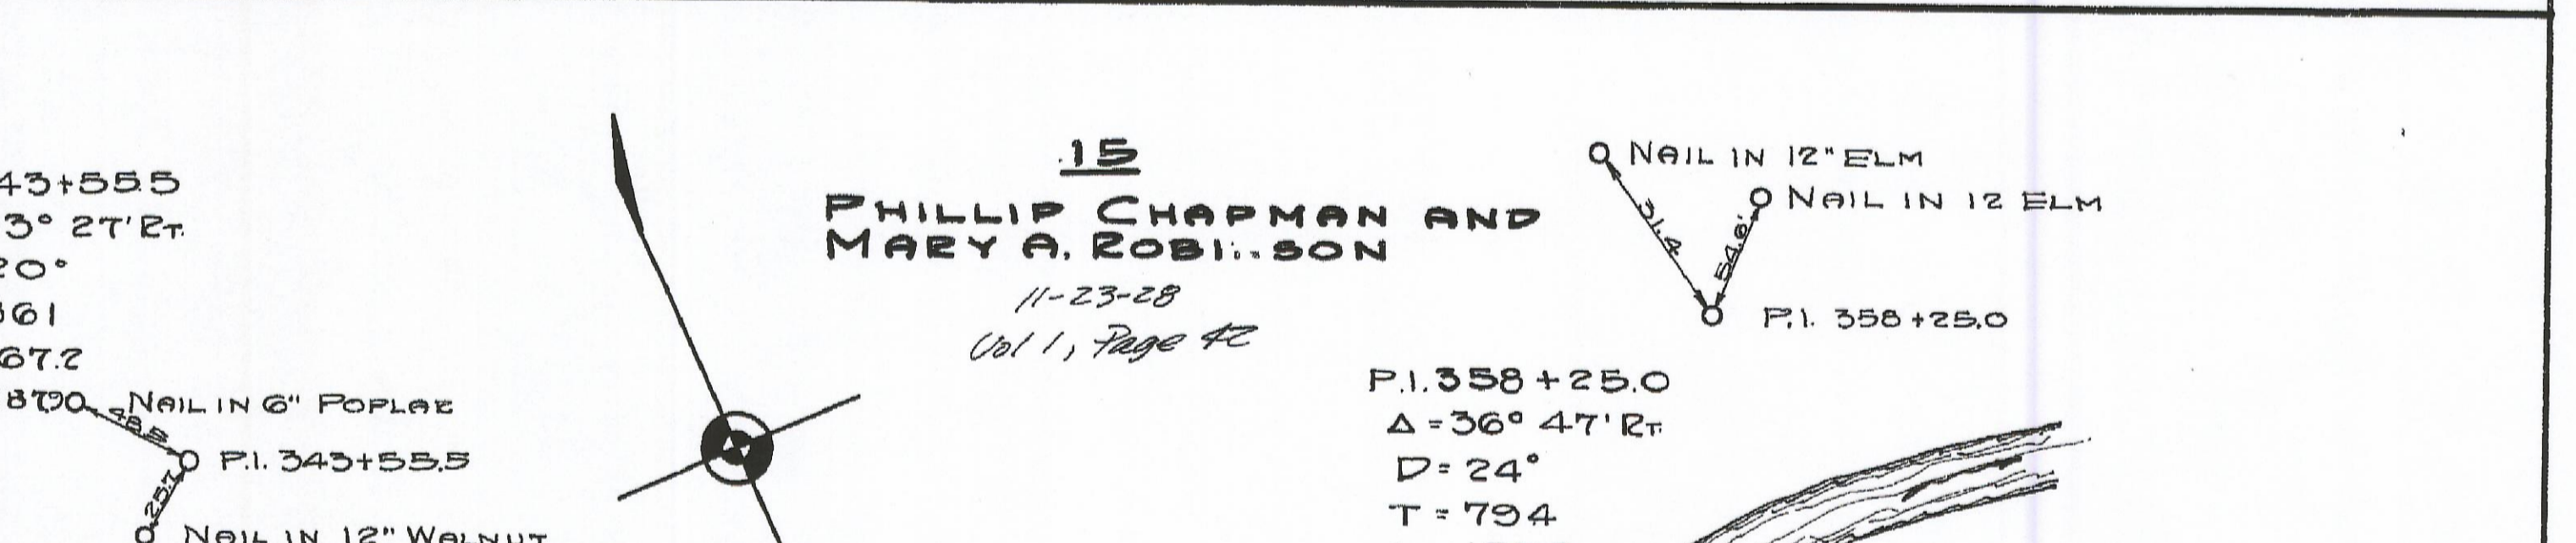 43+55.5
3° 27' RT.
20°
361
67.2
8790
NAIL IN 6" POPLAR
48.5
P.I. 343+55.5
25.7
NAIL IN 12" WALNUT
15
PHILLIP CHAPMAN AND
MARY A. ROBI..SON
11-23-28
Vol 1, Page 42
NAIL IN 12" ELM
NAIL IN 12 ELM
31.4
54.6'
P.I. 358+25.0
P.I. 358+25.0
Δ = 36° 47' RT.
D = 24°
T = 794